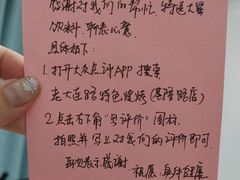 感谢对我们的帮忙，特送大家
饮料，聊表心意
具体如下：
1. 打开大众点评APP 搜索
老大连路特色烧烤（店）
2. 点击右下角"写评价"图标
拍照并写上对我们的评价即可
再次表示感谢
祝愿 身体健康